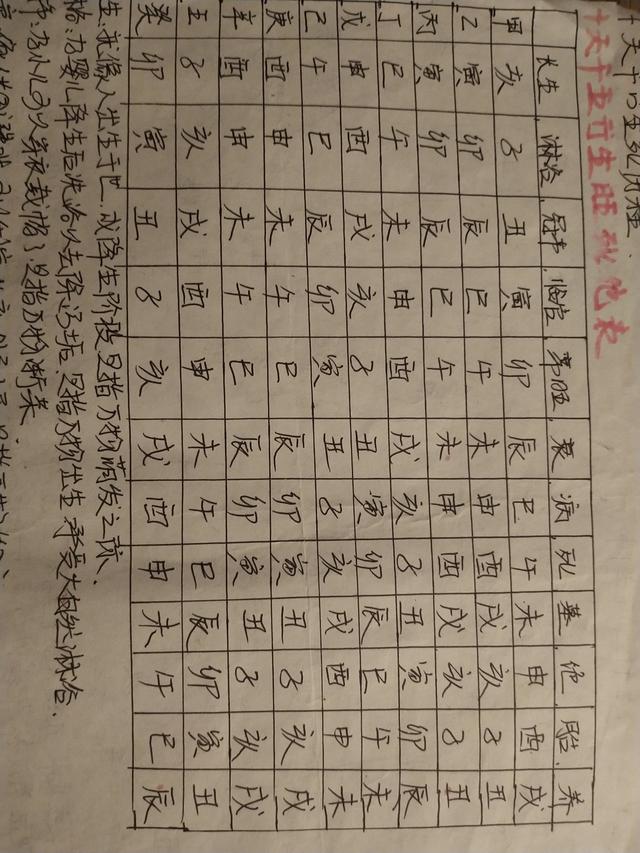 十天干的生死历程.
十天干五行生旺死绝表
长生 沐浴 冠带 临官 帝旺 衰 病 死 墓 绝 胎 养
甲 亥 子 丑 寅 卯 辰 巳 午 未 申 酉 戌
乙 寅 卯 辰 巳 午 未 申 酉 戌 亥 子 丑
丙 寅 卯 辰 巳 午 未 申 酉 戌 亥 子 丑
丁 巳 午 未 申 酉 戌 亥 子 丑 寅 卯 辰
戊 申 酉 戌 亥 子 丑 寅 卯 辰 巳 午 未
己 午 巳 辰 卯 寅 丑 子 亥 戌 酉 申 未
庚 酉 申 未 午 巳 辰 卯 寅 丑 子 亥 戌
辛 酉 申 未 午 巳 辰 卯 寅 丑 子 亥 戌
壬 子 亥 戌 酉 申 未 午 巳 辰 卯 寅 丑
癸 卯 寅 丑 子 亥 戌 酉 申 未 午 巳 辰
生:就像人出生于世,或降生阶段是指万物萌发之际.
浴:为婴儿降生后洗浴以去除污垢.是指万物出生 承受大自然沐浴.
带:为小儿可以穿衣戴帽了.是指万物渐荣